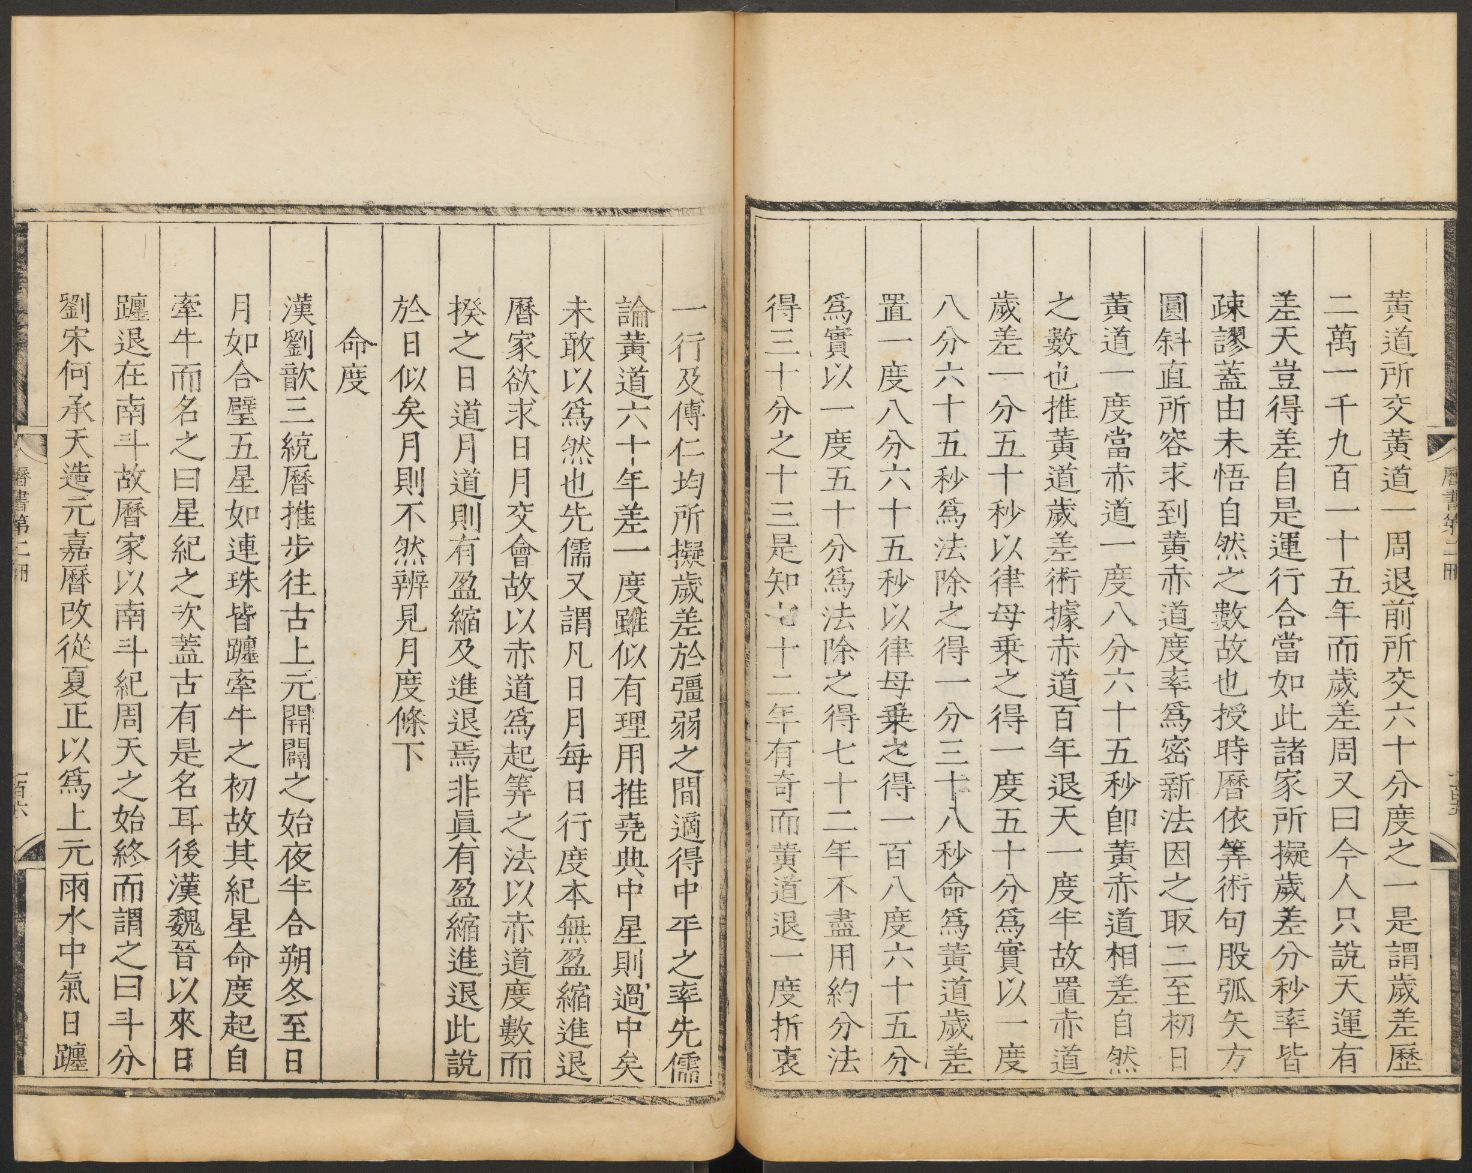 黃道所交黃道一周退前所交六十分度之一是謂歲差歷
二萬一千九百一十五年而歲差周又曰今人只説天運有
差天豈得差自是運行合當如此諸家所擬歲差分秒率皆
疎謬蓋由未悟自然之數故也授時曆依筭術句股弧矢方
圓斜直所容求到黃赤道度率爲密新法因之取二至初日
黃道一度當赤道一度八分六十五秒卽黃赤道相差自然
之數也推黃道歲差術據赤道百年退天一度半故置赤道
歲差一分五十秒以律母乘之得一度五十分爲實以一度
八分六十五秒爲法除之得一分三十八秒命爲黃道歲差
置一度八分六十五秒以律母乗之得一百八度六十五分
爲實以一度五十分爲法除之得七十二年不盡用約分法
得三十分之十三是知七十二年有奇而黃道退一度折衷
曆書第二冊
一行及傅仁均所擬歲差於彊弱之間適得中平之率先儒
論黃道六十年差一度雖似有理用推堯典中星則過中矣
未敢以爲然也先儒又謂凡日月每日行度本無盈縮進退
曆家欲求日月交會故以赤道爲起筭之法以赤道度數而
揆之日道月道則有盈縮及進退焉非眞有盈縮進退此説
於日似矣月則不然辨見月度條下
命度
漢劉歆三統曆推步往古上元開闢之始夜半合朔冬至日
月如合璧五星如連珠皆躔牽牛之初故其紀星命度起自
牽牛而名之曰星紀之次蓋古有是名耳後漢魏晉以來日
躔退在南斗故曆家以南斗紀周天之始終而謂之曰斗分
劉宋何承天造元嘉曆改從夏正以爲上元雨水中氣日躔
曆書第二冊
百六